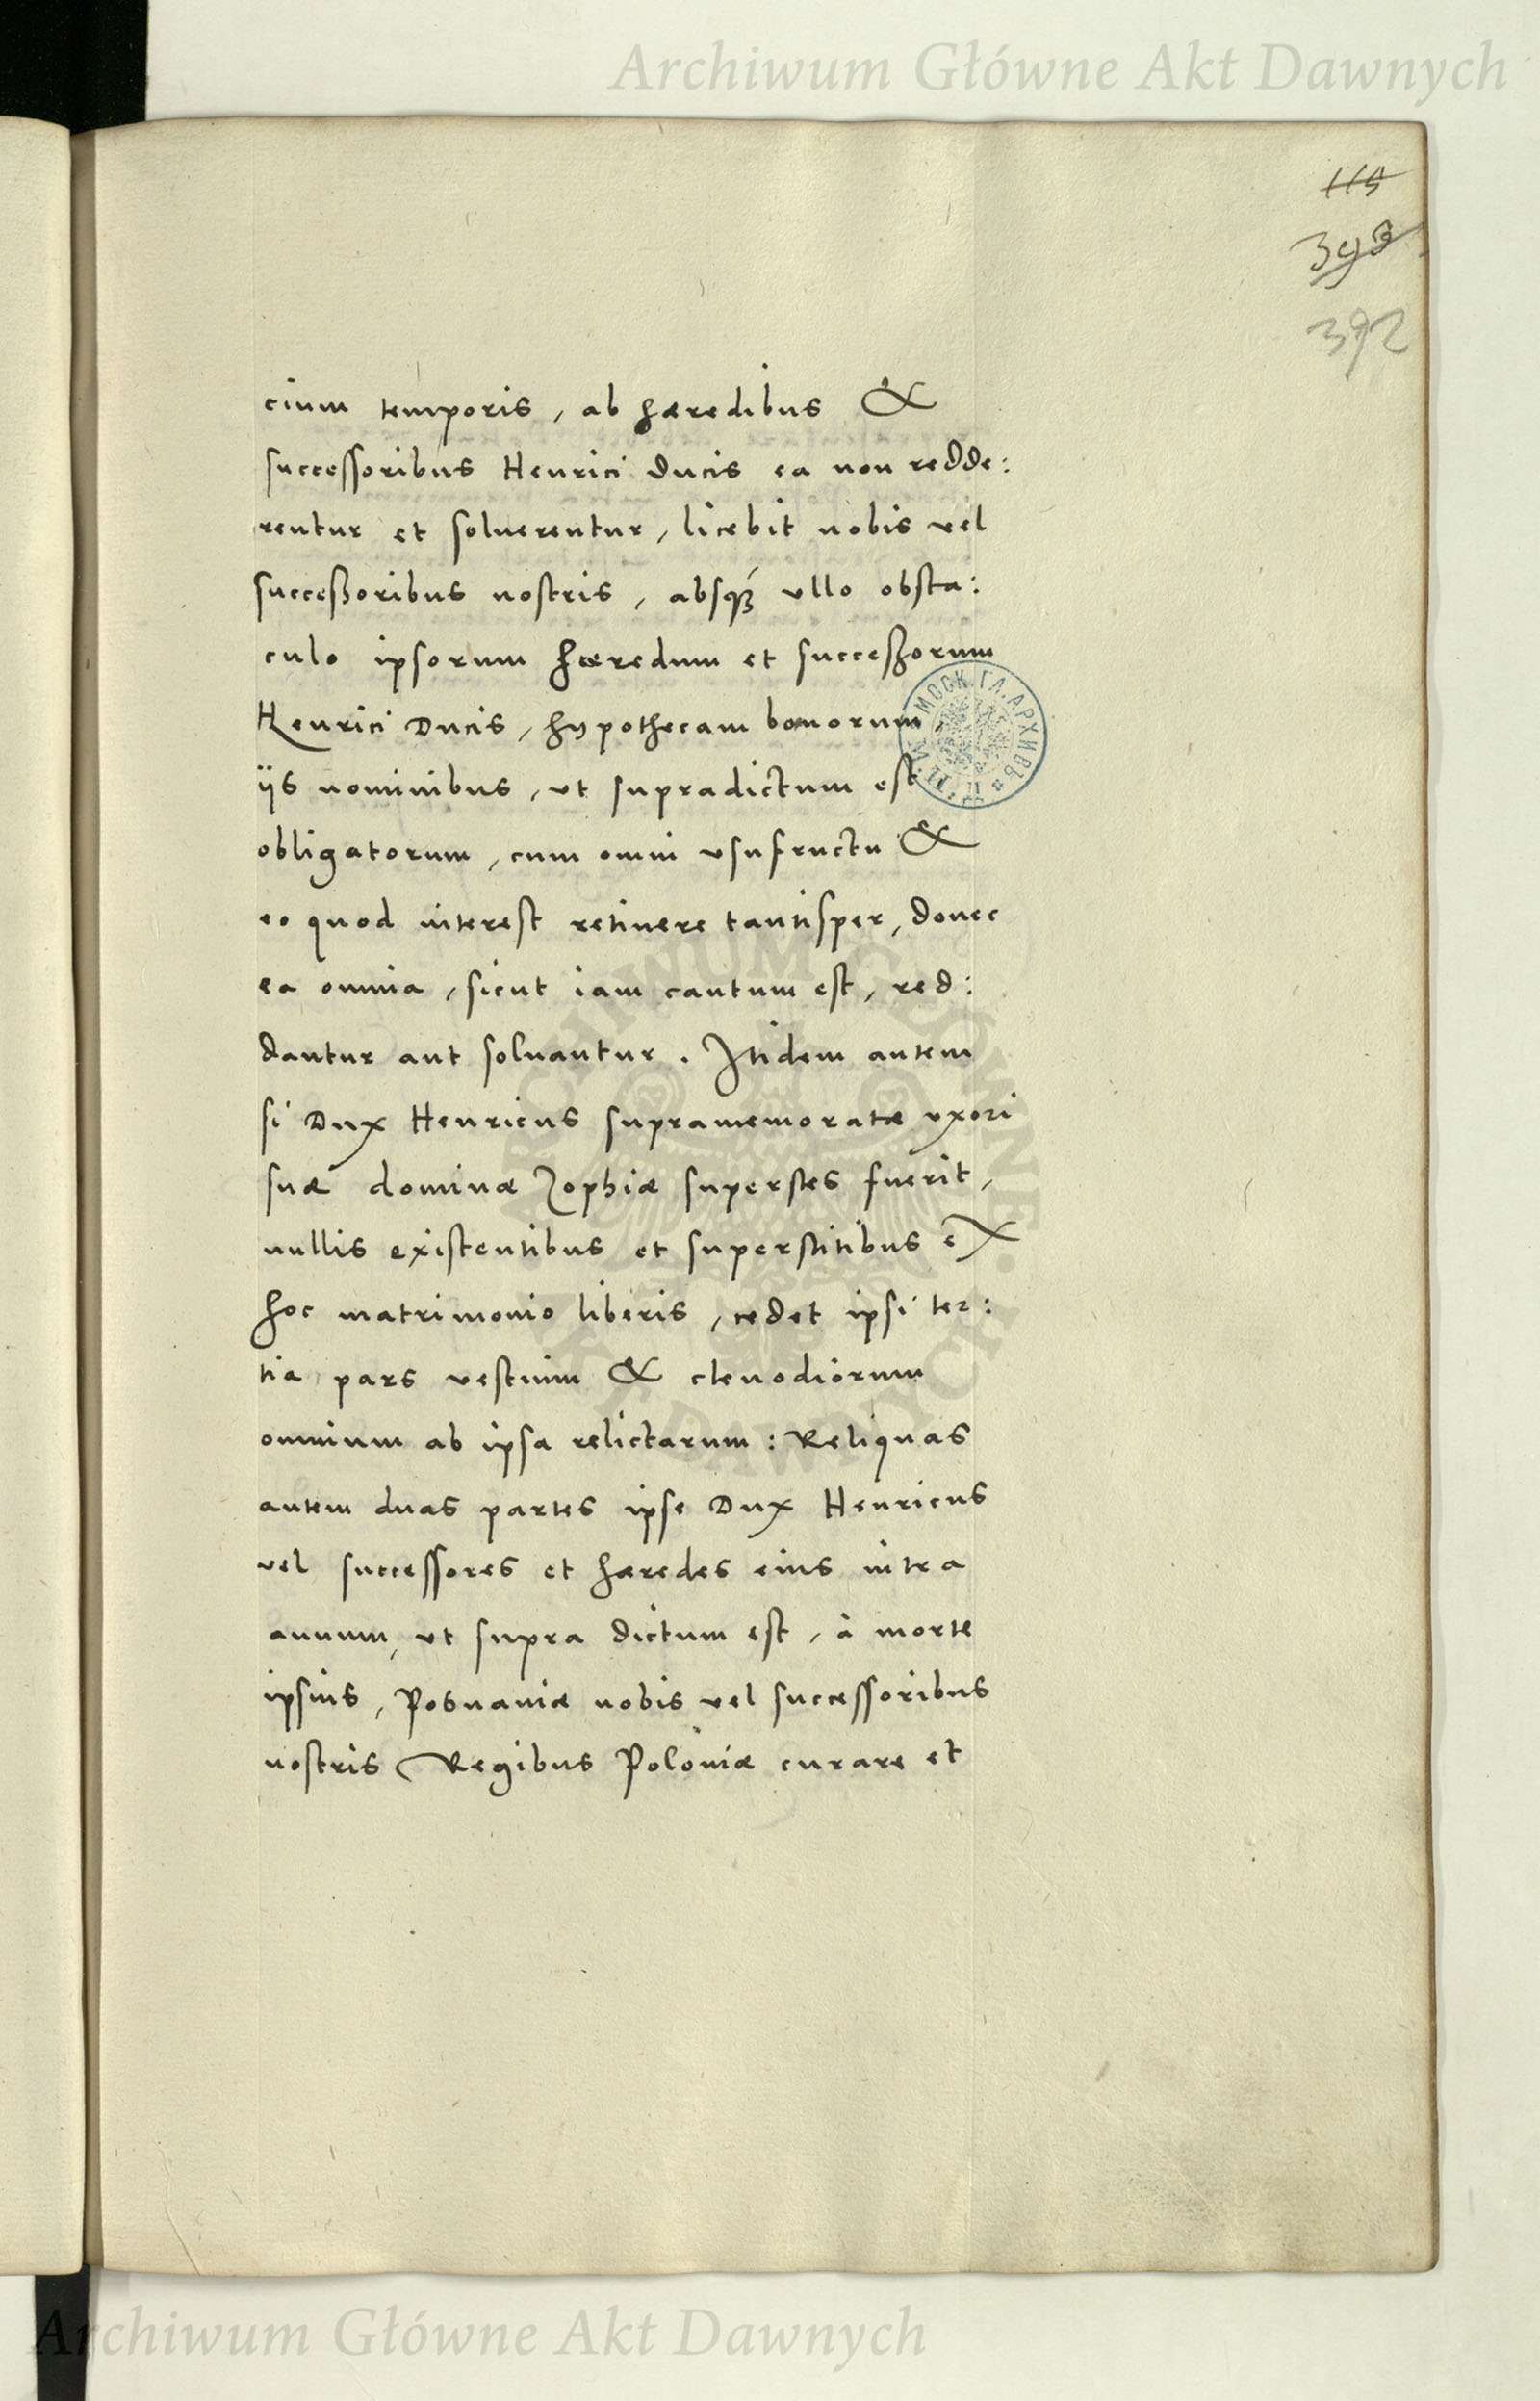 Archiwum Główne Akt Dawnych
115
393
392
cium temporis, ab hæredibus &
successoribus Henrici ducis ea non redde:
rentur et soluerentur, licebit nobis vel
succeßoribus nostris, absqꝫ vllo obsta:
culo ipsorum hæredum et succeßorum
Henrici Ducis, hypothecam bonorum,
ijs nominibus, vt supradictum est
obligatorum, cum omni vsufructu &
eo quod interest retinere tantisper, donec
ea omnia, sicut iam cautum est, red:
dantur aut soluantur. Itidem autem
si Dux Henricus supramemoratæ vxori
suæ dominæ Zophiæ superstes fuerit,
nullis existentibus et superstitibus ex
hoc matrimonio liberis, cedet ipsi ter:
tia pars vestium & clenodiorum
omnium ab ipsa relictarum: Reliquas
autem duas partes ipse Dux Henricus
vel successores et hæredes eius intra
annum, vt supra dictum est, à morte
ipsius, Posnaniæ nobis vel successoribus
nostris Regibus Poloniæ curare et
МОСК. ГЛ. АРХИВЪ
ARCHIWUM GŁÓWNE AKT DAWNYCH
Archiwum Główne Akt Dawnych